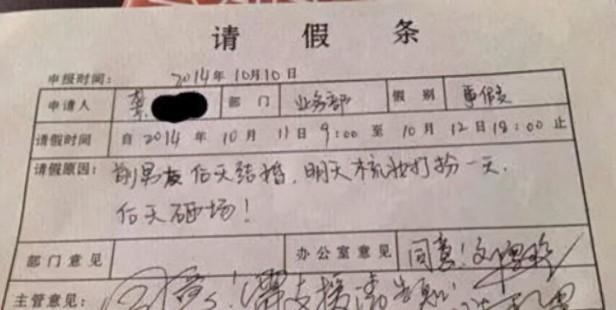 请假条
申报时间: 2014年10月10日
申请人 部门 业务部 假别 事假
请假时间 自 2014 年 10 月 11 日 9:00 至 10 月 12 日 18:00 止
请假原因: 前男友后天结婚,明天梳妆打扮一天,
后天砸场!
部门意见 办公室意见 同意!
主管意见: 同意!需支援请告知!